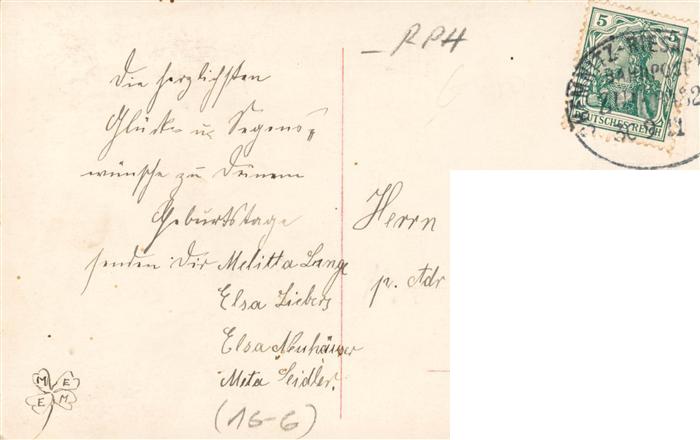 Die herzlichsten
Glücks u. Segens„
wünsche zu Deinem
Geburtstage
senden Dir Melitta Lange
Elsa Liebers
Elsa Neuhäuser
Meta Seidler.
(16-6)
M E
E M
RPH
5 5
DEUTSCHES REICH
CHEMNITZ-RIESA
BAHNPOST
ZUG
Herrn
p. Adr